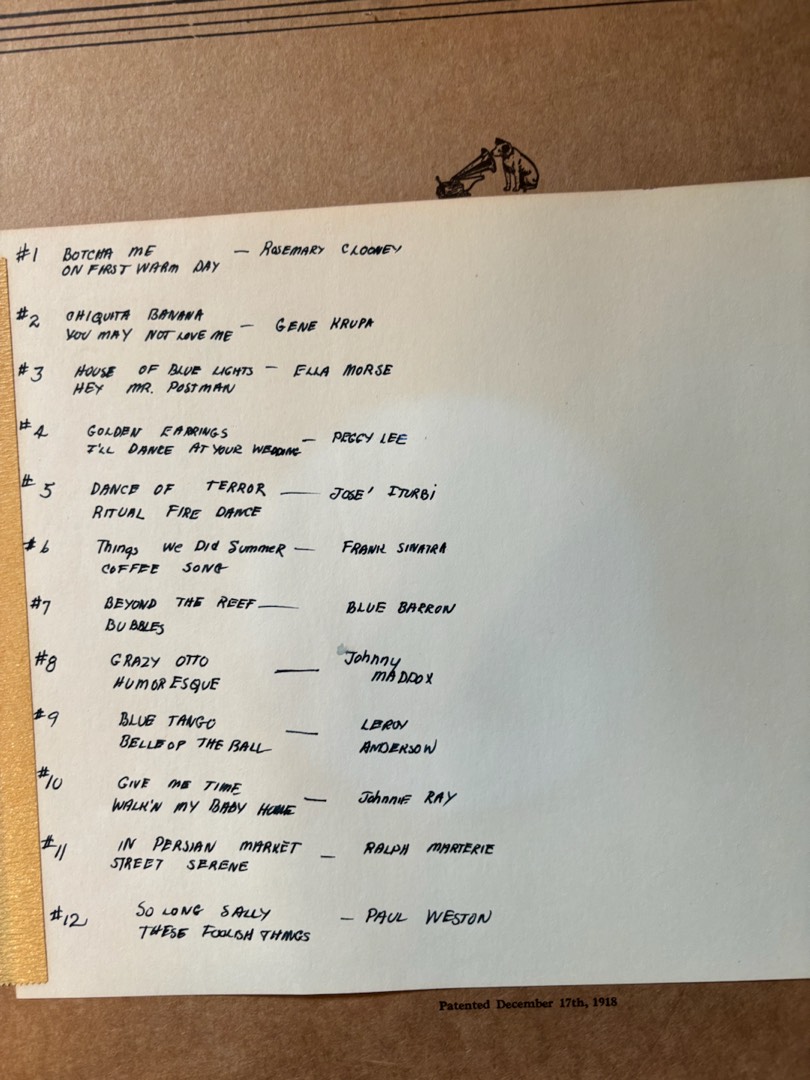 #1 BOTCHA ME — ROSEMARY CLOONEY
ON FIRST WARM DAY
#2 CHIQUITA BANANA
YOU MAY NOT LOVE ME — GENE KRUPA
#3 HOUSE OF BLUE LIGHTS — ELLA MORSE
HEY MR. POSTMAN
#4 GOLDEN EARRINGS — PEGGY LEE
I'LL DANCE AT YOUR WEDDING
#5 DANCE OF TERROR — JOSE' ITURBI
RITUAL FIRE DANCE
#6 Things We Did Summer — FRANK SINATRA
COFFEE SONG
#7 BEYOND THE REEF — BLUE BARRON
BUBBLES
#8 CRAZY OTTO — Johnny
HUMORESQUE MADDOX
#9 BLUE TANGO — LEROY
BELLE OF THE BALL ANDERSON
#10 GIVE ME TIME
WALK'N MY BABY HOME — Johnnie RAY
#11 IN PERSIAN MARKET — RALPH MARTERIE
STREET SERENE
#12 SO LONG SALLY — PAUL WESTON
THESE FOOLISH THINGS
Patented December 17th, 1918